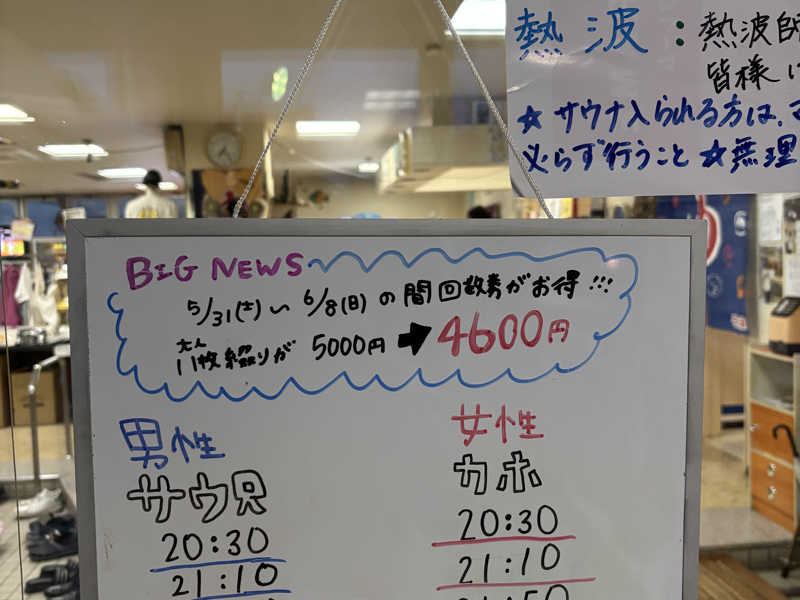 熱波:熱波師
皆様に
★サウナ入られる方は、
必らず行うこと★無理
BIG NEWS
5/31(土)〜6/8(日)の間回数券がお得!!!
大人
11枚綴りが 5000円➡4600円
男性
サウ兄
20:30
21:10
女性
カホ
20:30
21:10